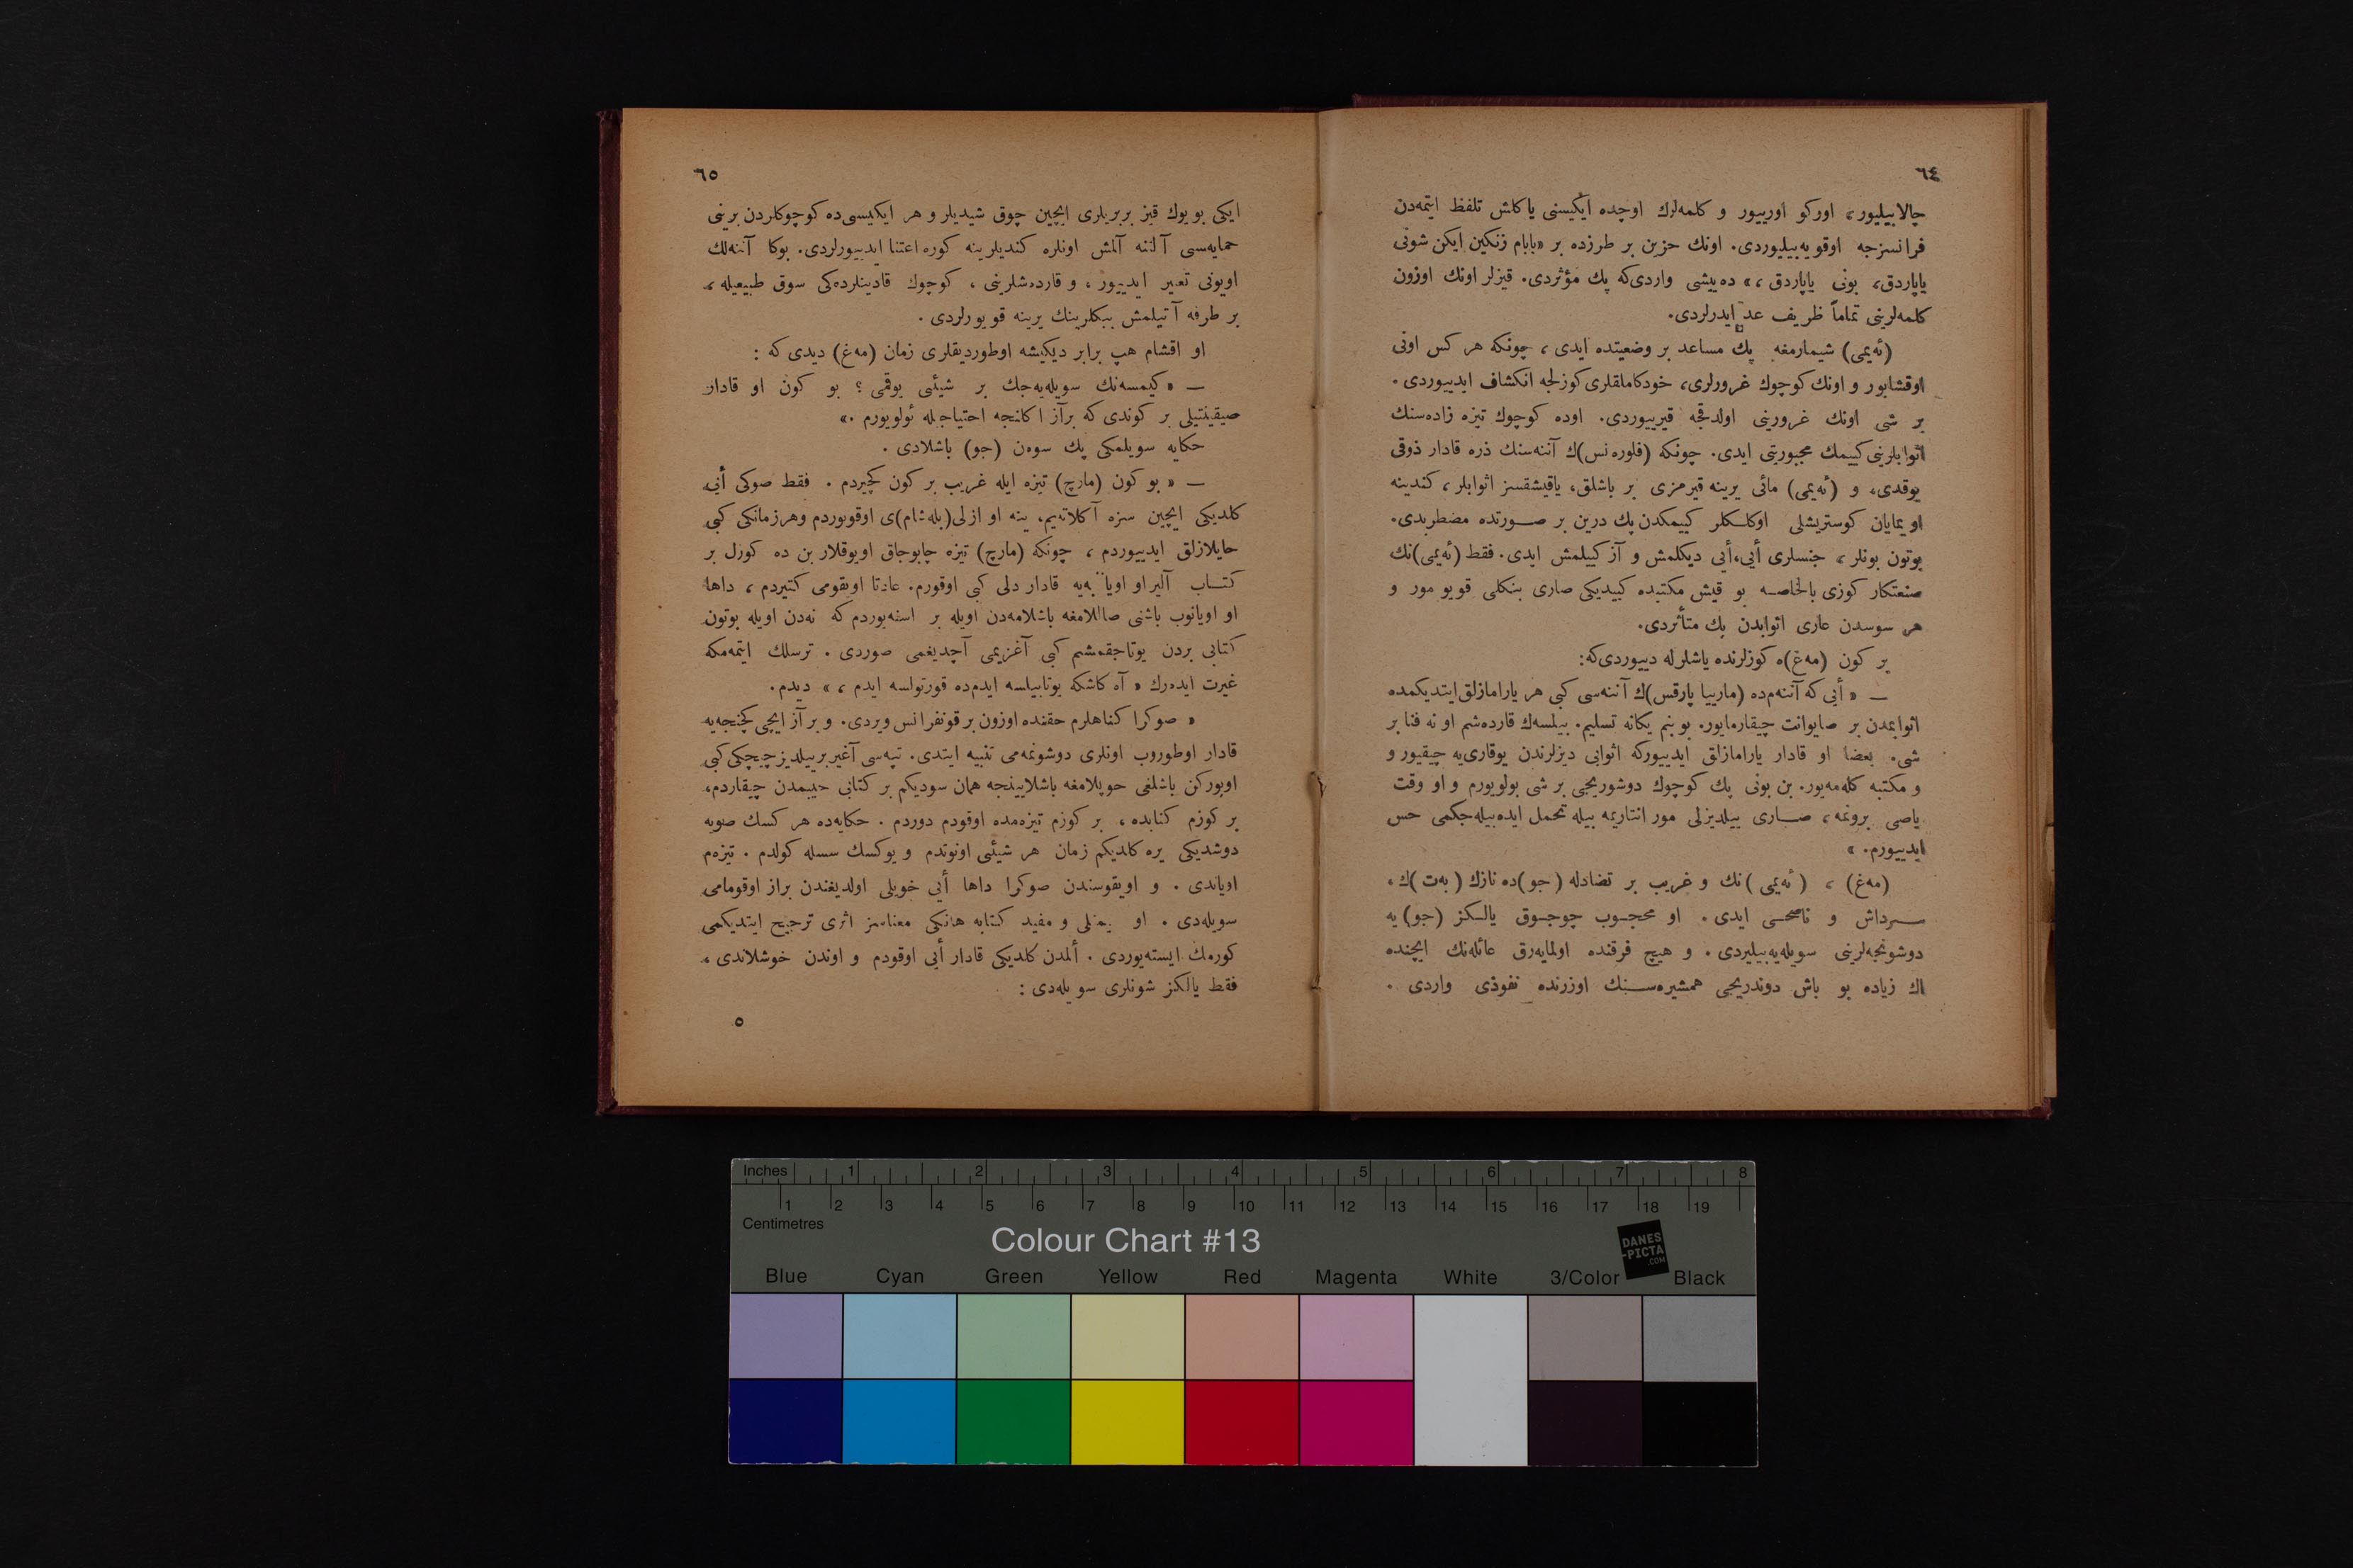 ٦٤
چالابیلیور، اورکو اورییور و کلمه‌لرك اوچده ایکیسنی یاکلش تلفظ ایتمه‌دن
فرانسزجه اوقویه‌بیلیوردی. اونك حزین بر طرزده بر «بابام زنکین ایکن شونی
یاپاردق، بونی یاپاردق،» ده‌ییشی واردی‌که پك مؤثردی. قیزلر اونك اوزون
کلمه‌لرینی تماماً ظریف عد ایدرلردی.
(ئه‌یمی) شیمارمغه پك مساعد بر وضعیتده ایدی، چونکه هر کس اونی
اوقشایور و اونك کوچوك غرورلری، خودکاملقلری کوزلجه انکشاف ایدییوردی.
بر شی اونك غرورینی اولدقجه قیرییوردی. اوده کوچوك تیزه زاده‌سنك
اثوابلرینی کییمك مجبوریتی ایدی. چونکه (فلوره‌نس)ك آننه‌سنك ذره قادار ذوقی
یوقدی، و (ئه‌یمی) مائی یرینه قیرمزی بر باشلق، یاقیشقسز اثوابلر، کندینه
اویمایان کوستریشلی اوکلـکلر کییمکدن پك درین بر صـورتده مضطربدی.
بوتون بونلر، جنسلری أیی، أیی دیکلمش و آز کییلمش ایدی. فقط (ئه‌یمی)نك
صنعتکار کوزی بالخاصـه بو قیش مکتبده کییدیکی صاری بنکلی قویو مور و
هر سوسدن عاری اثوابدن پك متأثردی.
بر کون (مه‌غ)ه کوزلرنده یاشلرله دییوردی‌که:
— «أیی که آننه‌م‌ده (ماریپا پارقس)ك آننه‌سی کبی هر یارامازلق ایتدیکمده
اثوابمدن بر صایوانت چیقارمایور. بو بنم یکانه تسلیم. بیلسه‌ك قارده‌شم او نه فنا بر
شی. بعضا او قادار یارامازلق ایدییورکه اثوابی دیزلرندن یوقاری‌یه چیقیور و
و مکتبه کله‌مه‌یور. بن بونی پك کوچوك دوشوریجی بر شی بولویورم و او وقت
یاصی برونمه، صـاری ییلدیزلی مور انتاریمه بیله تحمل ایده‌بیله‌جکمی حس
ایدییورم.»
(مه‌غ)، (ئه‌یمی)نك و غریب بر تضادله (جو)ده نازك (به‌ت)ك،
سـرداش و ناصحـی ایدی. او محجـوب چوجـوق یالـکز (جو)یه
دوشونجه‌لرینی سویله‌یه‌بیلیردی. و هیچ فرقنده اولمایه‌رق عائله‌نك ایچنده
اك زیاده بو باش دوندریجی همشیره‌سـنك اوزرنده نفوذی واردی.
٦٥
ایکی بویوك قیز بربریلری ایچین چوق شیدیلر و هر ایکیسی‌ده کوچوکلردن برینی
حمایه‌سی آلتنه آلمش اونلره کندیلرینه کوره اعتنا ایدییورلردی. بوکا آننه‌لك
اویونی تعبیر ایدییور، و قارده‌شلرینی، کوچوك قادینلرده‌کی سوق طبیعیله،
بر طرفه آتیلمش ببکلرینك یرینه قویورلردی.
او اقشام هپ برابر دیکیشه اوطوردیقلری زمان (مه‌غ) دیدی‌که:
— «کیمسه‌نك سویله‌یه‌جك بر شیئی یوقمی؟ بو کون او قادار
صیقینتیلی بر کوندی که برآز اکلنجه احتیاجیله ئولویورم.»
حکایه سویلمکی پك سوه‌ن (جو) باشلادی.
— «بو کون (مارچ) تیزه ایله غریب بر کون کچیردم. فقط صوکی أیی
کلدیکی ایچین سزه آکلاته‌یم، ینه او ازلی (بله‌شام)ی اوقویوردم و هر زمانکی کبی
حایلازلق ایدییوردم، چونکه (مارچ) تیزه چابوجاق اویوقلار بن ده کوزل بر
کتـاب آلیر او اویانه‌یه قادار دلی کبی اوقورم. عادتا اویقومی کتیردم، داها
او اویانوب باشنی صاللامغه باشلامه‌دن اویله بر اسنه‌یوردم که نه‌دن اویله بوتون
کتابی بردن یوتاجقمشم کبی آغزیمی آچدیغمی صوردی. ترسلك ایتمه‌مکه
غیرت ایده‌رك «آه کاشکه یوتابیلسه ایدم‌ده قورتولسه ایدم،» دیدم.
«صوکرا کناهلرم حقنده اوزون بر قونفرانس ویردی. و بر آز ایچی کچنجه‌یه
قادار اوطوروب اونلری دوشونمه‌می تنبیه ایتدی. تپه‌سی آغیر بر ییلدیز چیچکی کبی
اویورکن باشلغی حوپلامغه باشلایینجه همان سودیکم بر کتابی جیبمدن چیقاردم،
بر کوزم کتابده، بر کوزم تیزه‌مده اوقودم دوردم. حکایه‌ده هر کسك صویه
دوشدیکی یره کلدیکم زمان هر شیئی اونوتدم و یوکسك سسله کولدم. تیزه‌م
اویاندی. و اویقوسندن صوکرا داها أیی خویلی اولدیغندن براز اوقومامی
سویله‌دی. او و مفید کتابه هانکی معناسز اثری ترجیح ایتدیکمی
کورمك ایسته‌یوردی. ألمدن کلدیکی قادار أیی اوقودم و اوندن خوشلاندی،
فقط یالکز شونلری سویله‌دی:
٥
Inches 1 2 3 4 5 6 7 8
1 2 3 4 5 6 7 8 9 10 11 12 13 14 15 16 17 18 19
Centimetres
Colour Chart #13
DANES
-PICTA
.COM
Blue Cyan Green Yellow Red Magenta White 3/Color Black